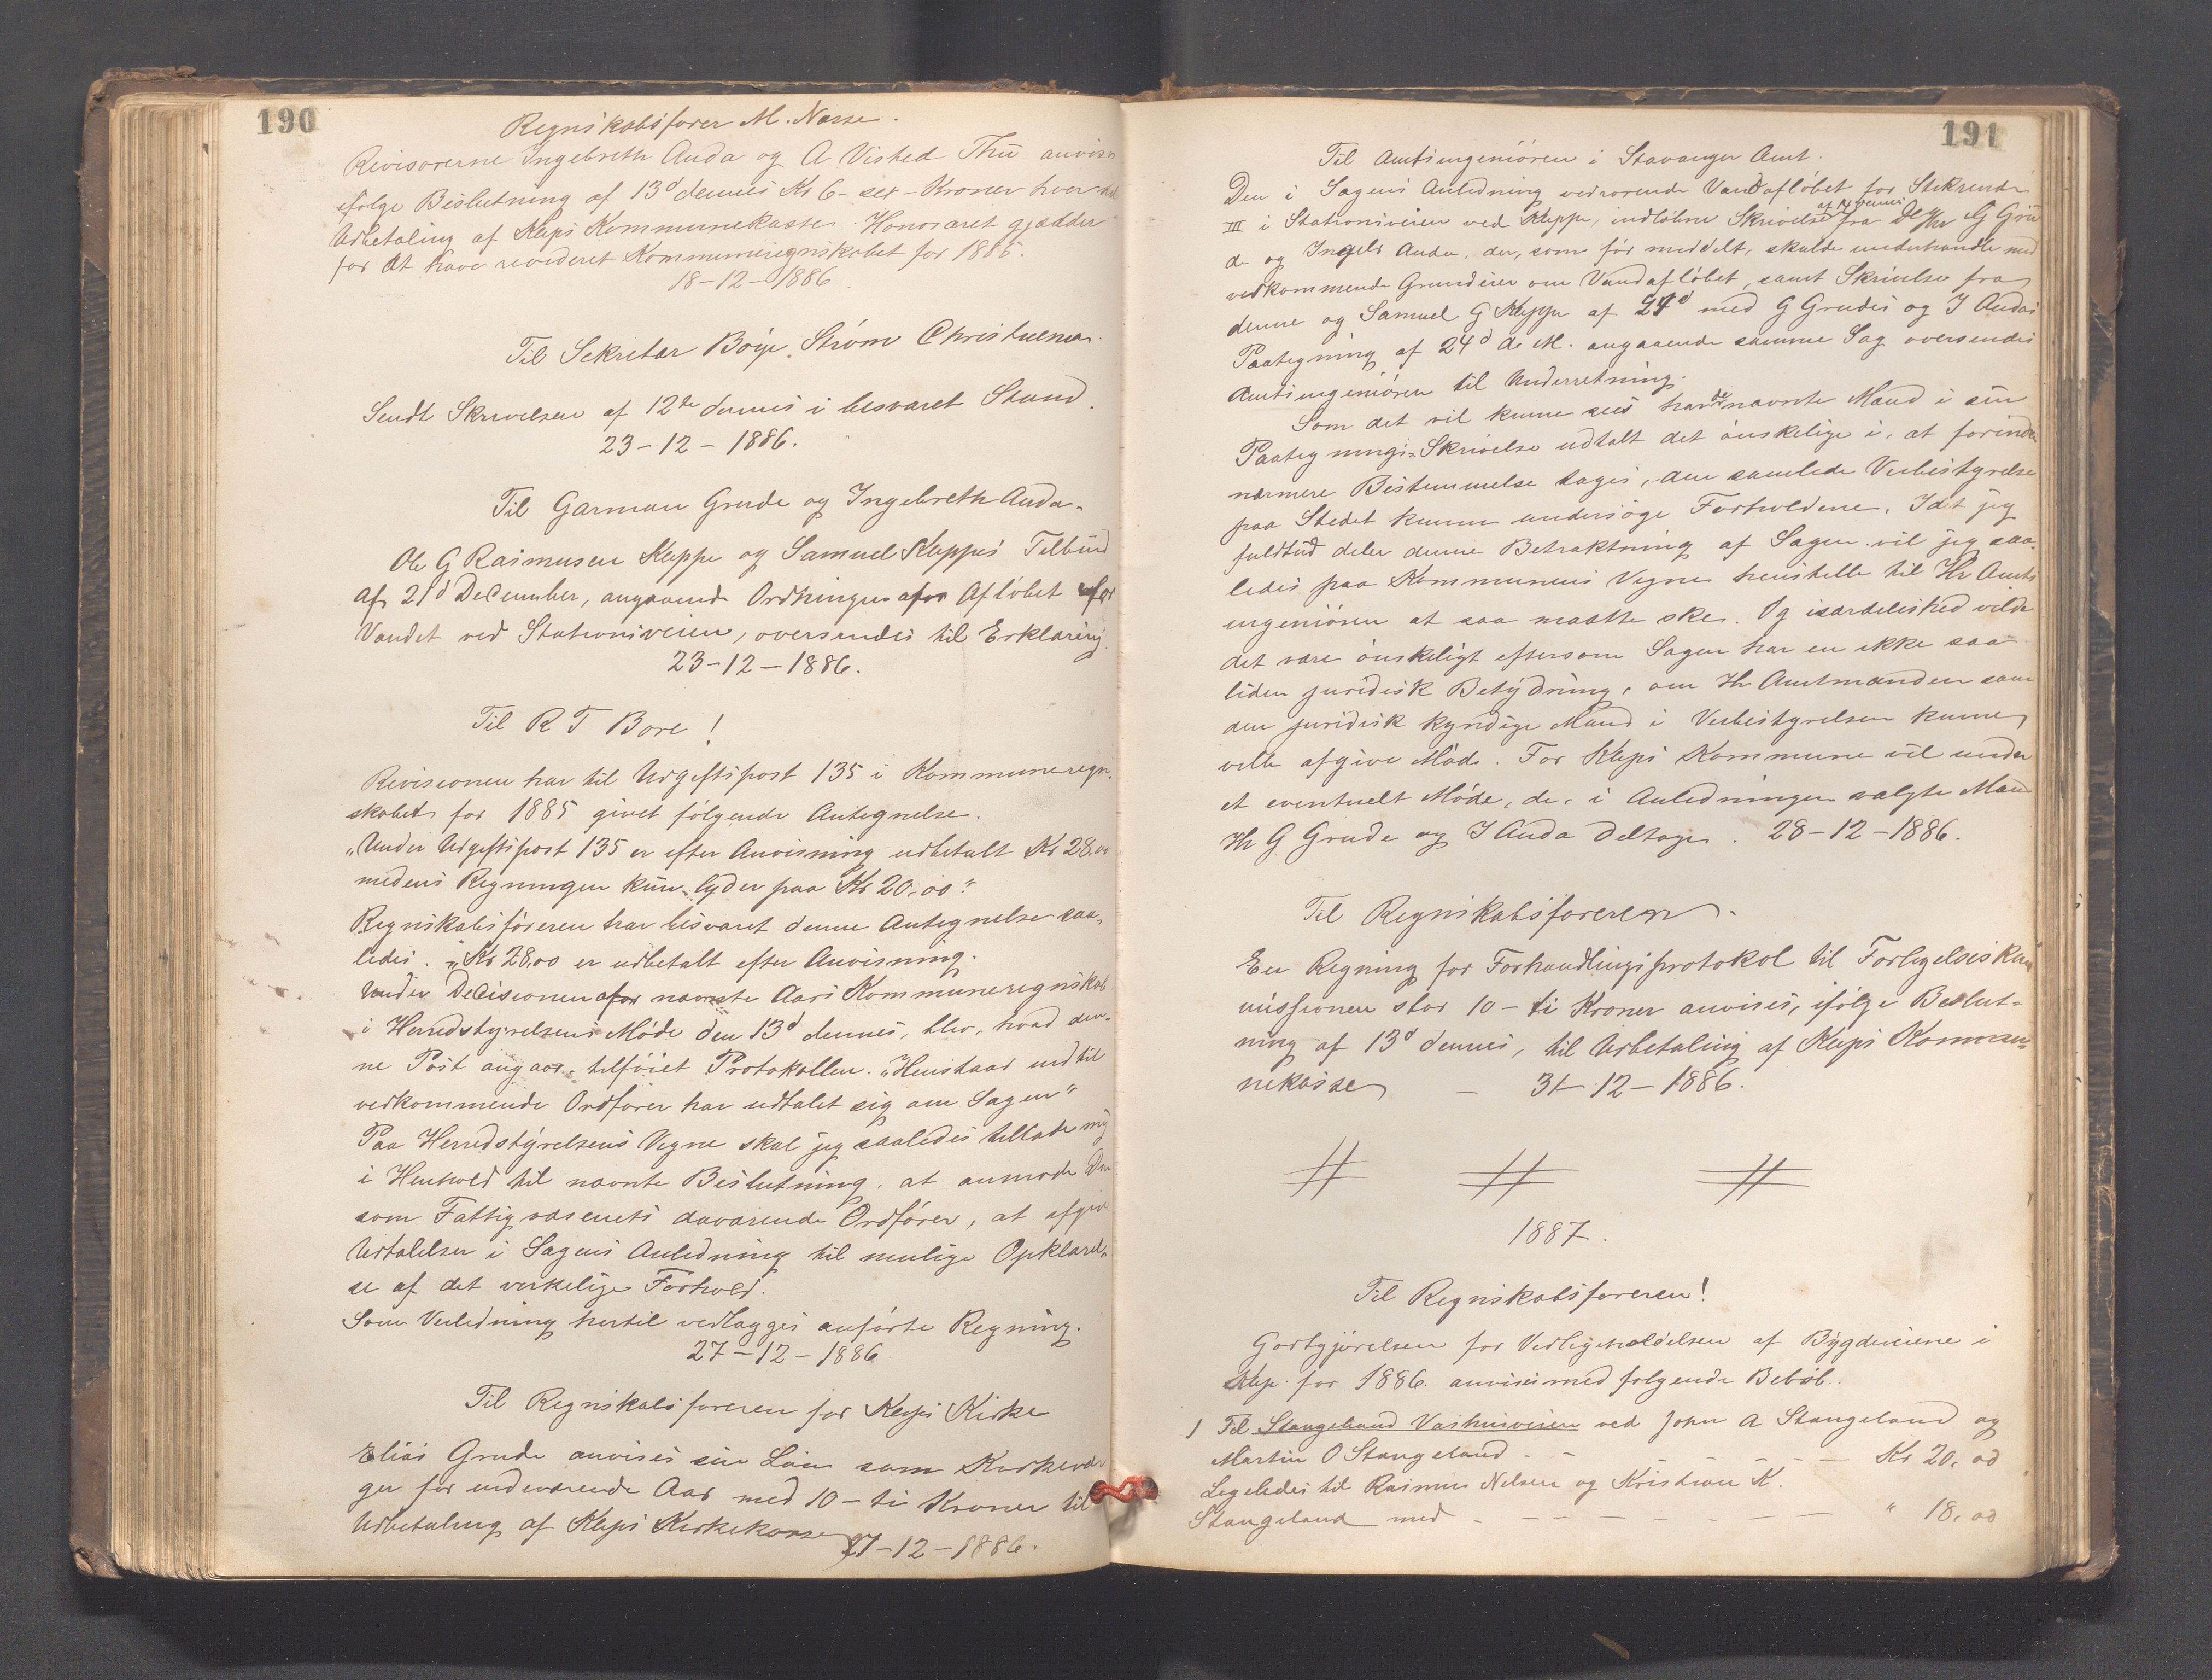 190
Regnskabsfører M. Nærse.
Revisorerne Ingebreth Anda og A Visted Thu anvises
ifølge Beslutning af 13d dennes Kr 6 - sex - Kroner hver
Udbetaling af Kleps Kommunekasse. Honoraret gjælder
for at have revideret Kommuneregnskabet for 1885.
18-12-1886
Til Sekretær Böye Strøm Christiania.
Sendt Skrivelsen af 12te dennes i besvaret Stand.
23-12-1886.
Til Garman Grude og Ingebreth Anda.
Ole G Rasmusen Kleppe og Samuel Kleppes Tilbud
af 21d December, angaaende Ordningen af Afløbet for
Vandet ved Stationsveien, oversendes til Erklæring.
23-12-1886.
Til R T Bore!
Revisionen har til Udgiftspost 135 i Kommuneregn-
skabet for 1885 givet følgende Antegnelse.
„Under Udgiftspost 135 er efter Anvisning udbetalt Kr 28,00
medens Regningen kun lyder paa Kr 20,00"
Regnskabsföreren har besvaret denne Antegnelse saa-
ledes. „Kr 28,00 er udbetalt efter Anvisning.
Under Decisionen af nævnte Aars Kommuneregnskab
i Herredstyrelsens Møde den 13d dennes, blev, hvad den-
ne Post angaar, tilföiet Protokollen. „Henstaar indtil
vedkommende Ordfører har udtalet sig om Sagen"
Paa Herredstyrelsens Vegne skal jeg saaledes tillade mig
i Henhold til nævnte Beslutning, at anmode Dem
som Fattigvæsenets daværende Ordfører, at afgive
Udtalelser i Sagens Anledning til mulige Opklarel-
se af det virkelige Forhold.
Som Veiledning hertil vedlægges anførte Regning.
27-12-1886.
Til Regnskabsføreren for Kleps Kirke
Elias Grude anvises sin Løn som Kirkevær-
ger for indeværende Aar med 10 - ti Kroner til
Udbetaling af Kleps Kirkekasse 27-12-1886.
191
Til Amtsingeniören i Stavanger Amt.
Den i Sagens Anledning vedrørende Vandafløbet for Stikrende
III i Stationsveien ved Kleppe, indløbne Skrivelse af dennes fra G Gru
de og Ingebr Anda, der, som før meddelt, skulde underhandle med
vedkommende Grundeier om Vandafløbet, samt Skrivelse fra
denne og Samuel G Kleppe af 24d med G Grudes og I Andas
Paategning af 24d d. M. angaaende samme Sag oversendes
Amtsingeniören til Underretning.
Som det vil kunne sees har de nævnte Mænd i sin
Paategnings Skrivelse udtalt det ønskelige i, at forinden
nærmere Bestemmelse tages, den samlede Veibestyrelse
paa Stedet kunne undersøge Forholdene. Idet jeg
fuldtud deler denne Betraktning af Sagen vil jeg saa-
ledes paa Kommunens Vegne henstille til Hr Amts
ingeniören at saa maatte ske. Og isærdeleshed vilde
det være ønskeligt eftersom Sagen har en ikke saa
liden juridisk Betydning, om Hr Amtmanden som
den juridisk kyndige Mand i Veibestyrelsen kunne
ville afgive Møde. For Kleps Kommune vil under
et eventuelt Møde, de i Anledningen valgte Mænd
Hr G Grude og I Anda deltage. 28-12-1886.
Til Regnskabsføreren.
En Regning for Forhandlingsprotokol til Forligelseskom
missionen stor 10 - ti Kroner anvises, ifølge Beslut-
ning af 13d dennes, til Udbetaling af Kleps Kommu-
nekasse - 31-12-1886.
1887.
Til Regnskabsføreren!
Godtgjørelsen for Vedligeholdelsen af Bygdeveiene i
Klep for 1886 anvises med følgende Beløb.
1 Til Stangeland Vashusveien ved John A Stangeland og
Martin O Stangeland - - - - Kr 20,00
Ligeledes til Rasmus Nelsen og Kristian K.
Stangeland med - - - - - - - " 18,00